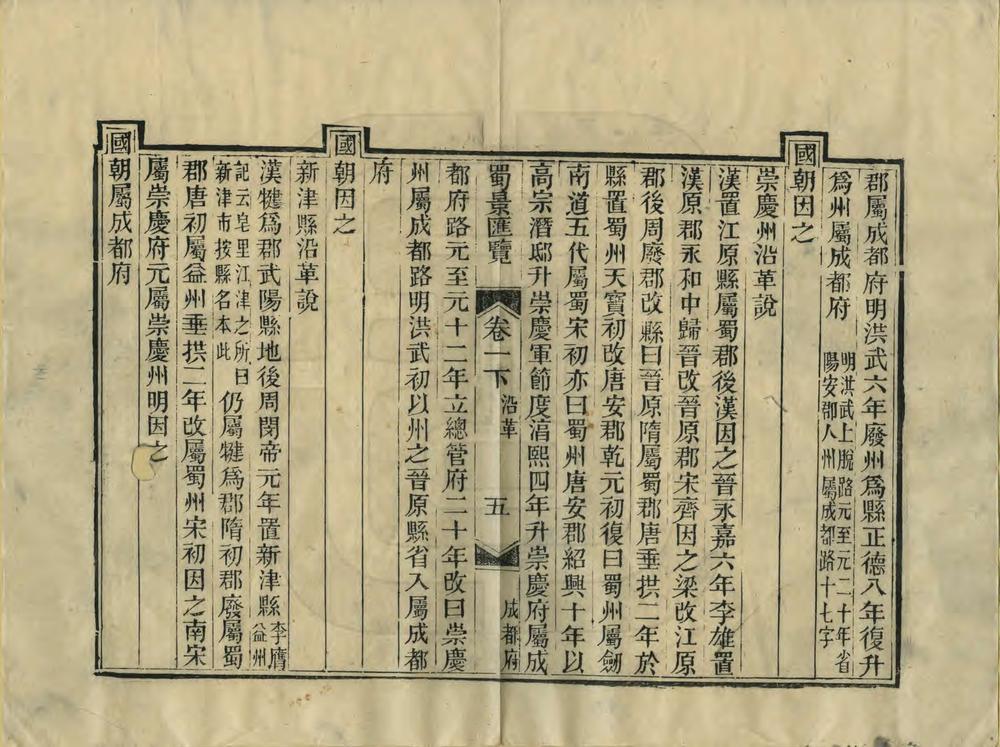 郡屬成都府明洪武六年廢州爲縣正德八年復升
爲州屬成都府
明洪武上脫路元至元二十年省
陽安郡入州屬成都路十七字
國朝因之
崇慶州沿革說
漢置江原縣屬蜀郡後漢因之晉永嘉六年李雄置
漢原郡永和中歸晉改晉原郡宋齊因之梁改江原
郡後周廢郡改縣曰晉原隋屬蜀郡唐垂拱二年於
縣置蜀州天寶初改唐安郡乾元初復曰蜀州屬劒
南道五代屬蜀宋初亦曰蜀州唐安郡紹興十年以
高宗潛邸升崇慶軍節度淳熙四年升崇慶府屬成
蜀景匯覽 卷一下 沿革 五 成都府
都府路元至元十二年立總管府二十年改曰崇慶
州屬成都路明洪武初以州之晉原縣省入屬成都
府
國朝因之
新津縣沿革說
漢犍爲郡武陽縣地後周閔帝元年置新津縣
李膺益州
記云皂里江津之所曰
新津市按縣名本此
仍屬犍爲郡隋初郡廢屬蜀
郡唐初屬益州垂拱二年改屬蜀州宋初因之南宋
屬崇慶府元屬崇慶州明因之
國朝屬成都府